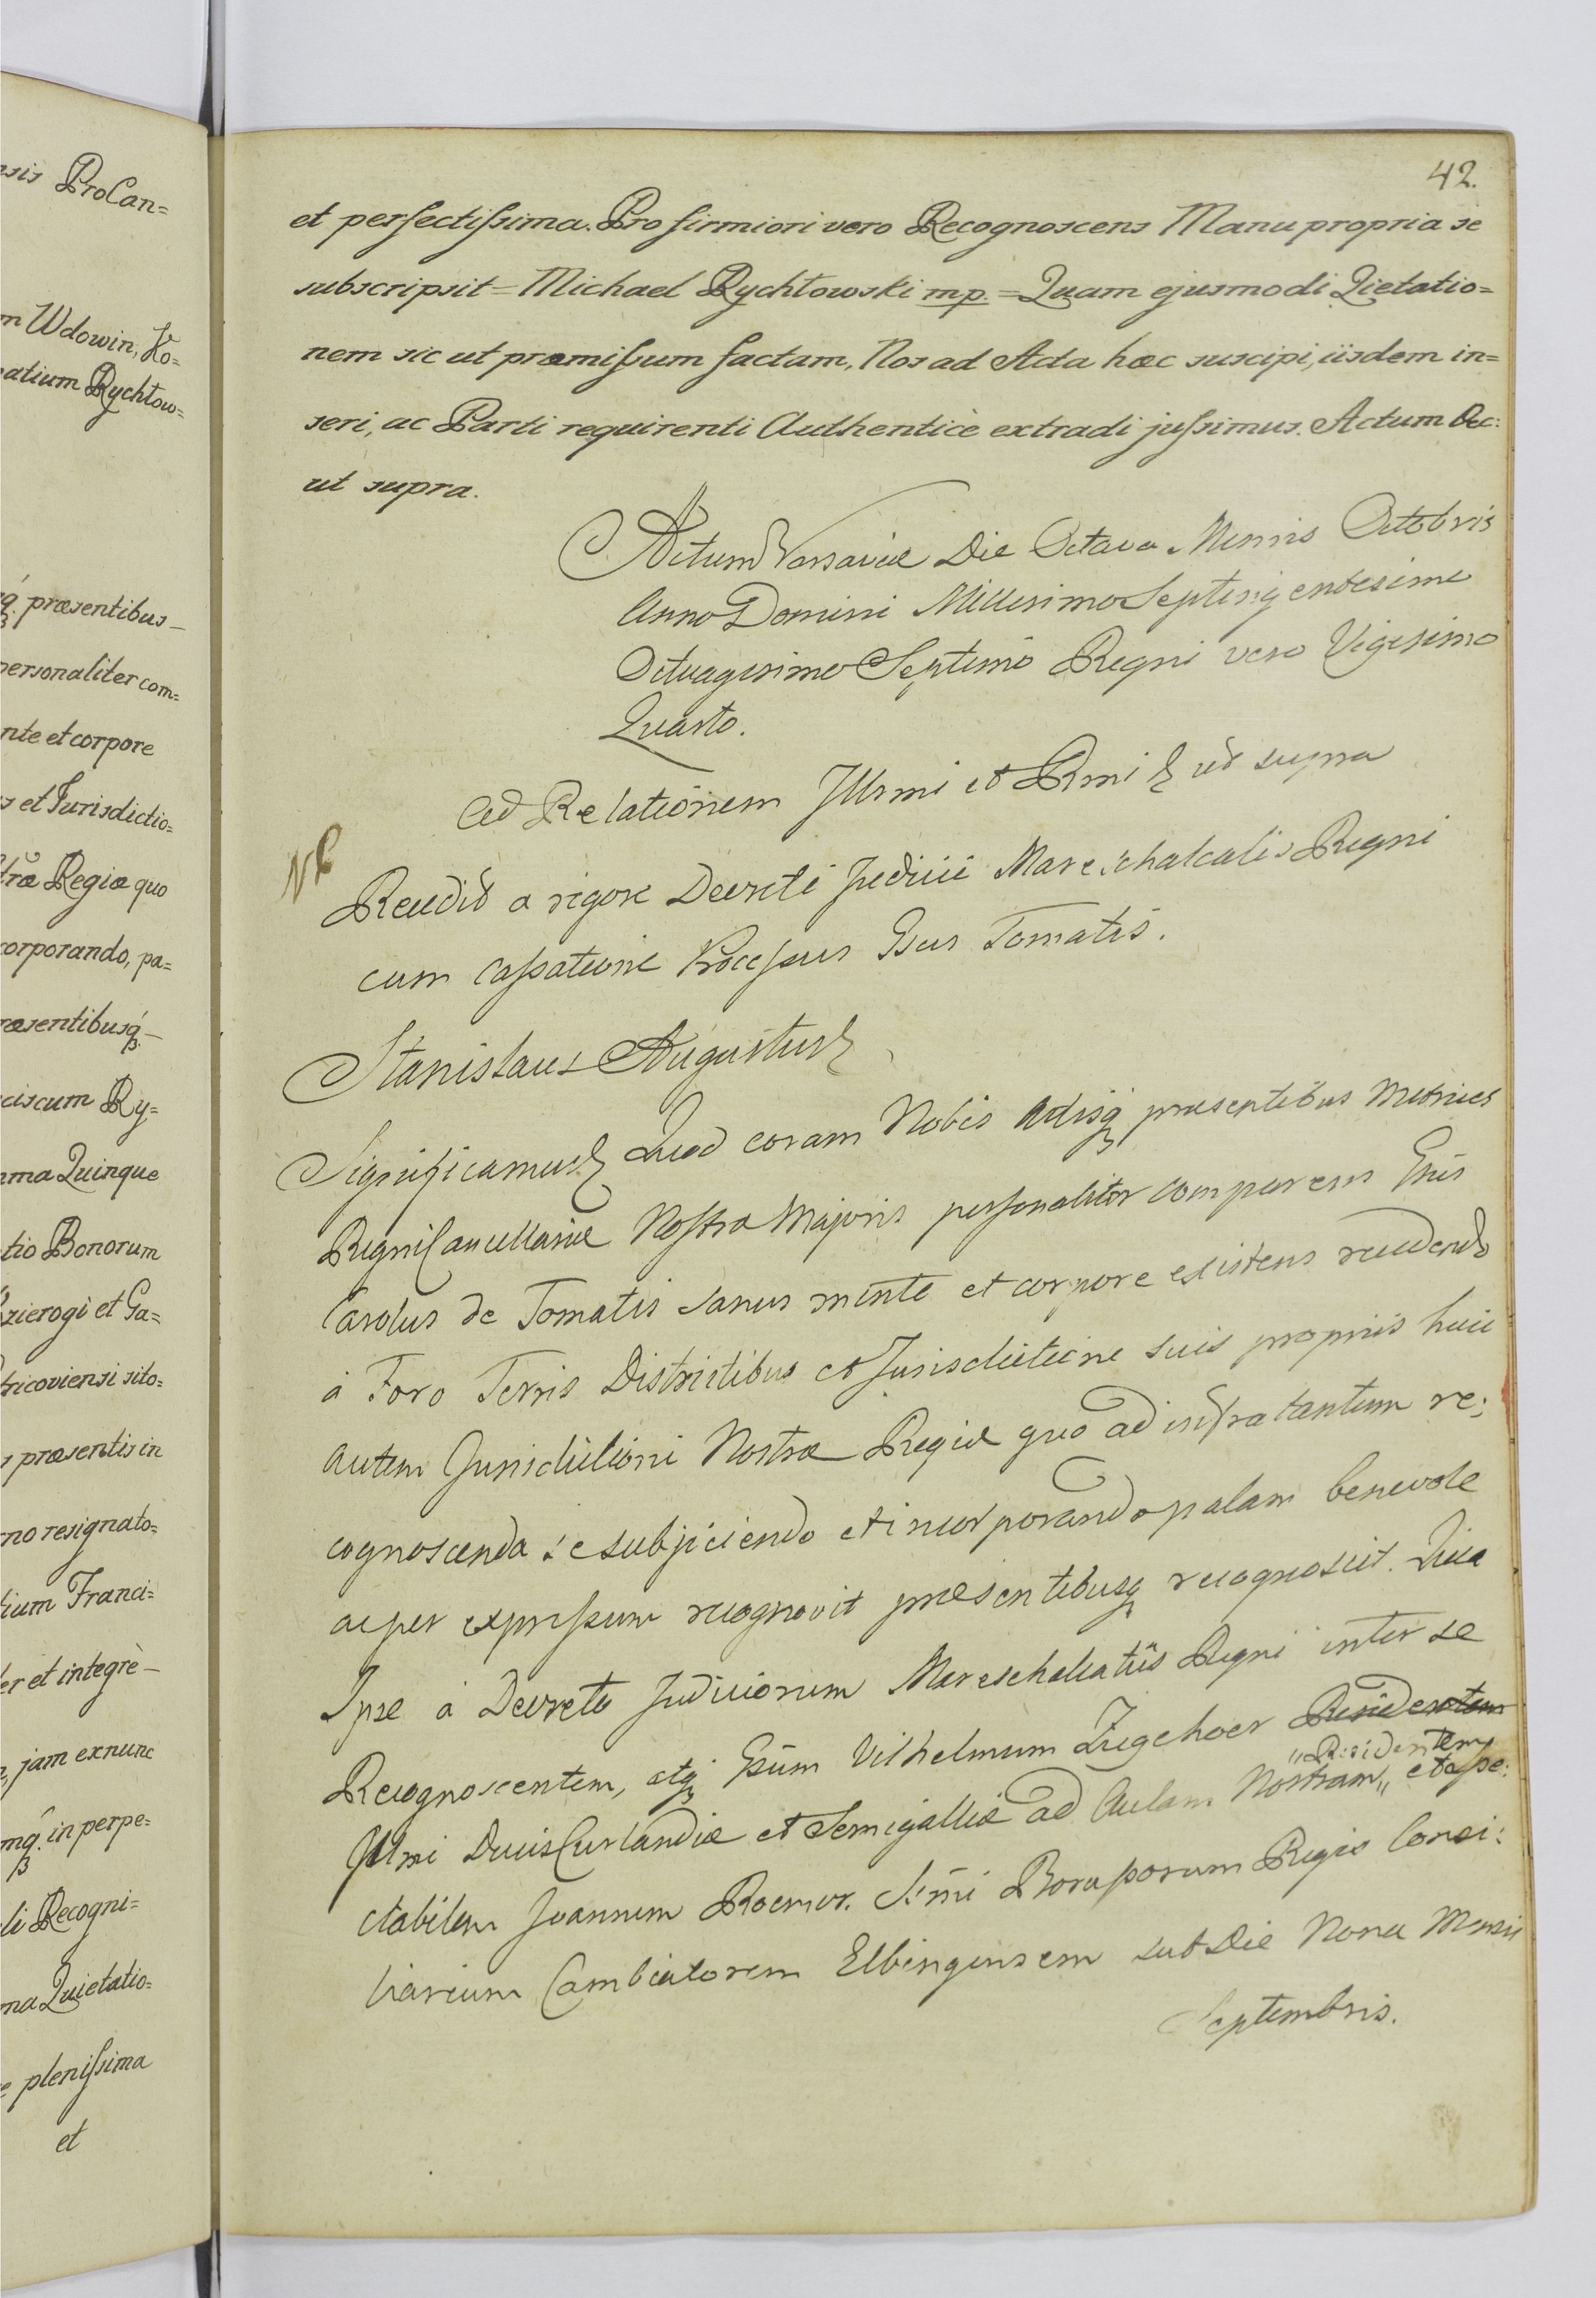 sis ProCan=
m Wdowin, Ko=
atium Rychłow=
q́ præsentibus
personaliter com=
nte et corpore
s et Jurisdictio=
træ Regiæ quo
corporando, pa=
ræsentibusq́
ciscum Ry=
ma Quinque
tio Bonorum
zierogi et Ga=
tricoviensi sito=
s præsentis in
no resignato=
lium Franci=
er et integrè
, jam exnunc
mq́ in perpe=
li Recogni=
na Quietatio=
e plenißima
et
42.
et perfectißima. Pro firmiori vero Recognoscens Manu propria se
subscripsit = Michael Rychłowski mp. = Quam ejusmodi Qietatio=
nem sic ut præmißum factam, Nos ad Acta hæc suscipi, iisdem in=
seri, ac Parti requirenti Authenticè extradi jußimus. Actum &c:
ut supra.
Actum Varsaviæ Die Octava Mensis Octobris
Anno Domini Millesimo Septingentesimo
Octuagesimo Septimo Regni vero Vigesimo
Quarto.
Ad Relationem Illrmi et Rmi & ut supra
NB
Recedit a rigore Decreti Judicii Mareschalcalis Regni
cum Caßatione Proceßus Gsus Tomatis.
Stanislaus Augustus &
Significamus & Quod coram Nobis Actisq præsentibus Metrices
Regni Cancellariæ Nostra Majoris personaliter comparens Gsus
Carolus de Tomatis sanus mente et corpore existens recedendo
à Foro Terris Districtibus et Jurisdictione suis propriis huic
autem Jurisdictioni Nostræ Regiæ quo ad infra tantum re;
cognoscenda se subjiciendo et incorporando palam benevole
ac per expreßum recognovit præsentibusq recognoscit. Quia
Ipse à Decreto Judiciorum Mareschalcatus Regni inter se
Recognoscentem, atq Gsum Vilhelmum Zugehoer Residentem
Illmi Ducis Curlandiæ et Semigalliæ ad Aulam Nostram „ Residentem „ et Spe:
ctabilem Joannem Roemer. Srmi Borußorum Regis Consi:
liarium Cambiatorem Elbingensem sub Die Nona Mensis
Septembris.